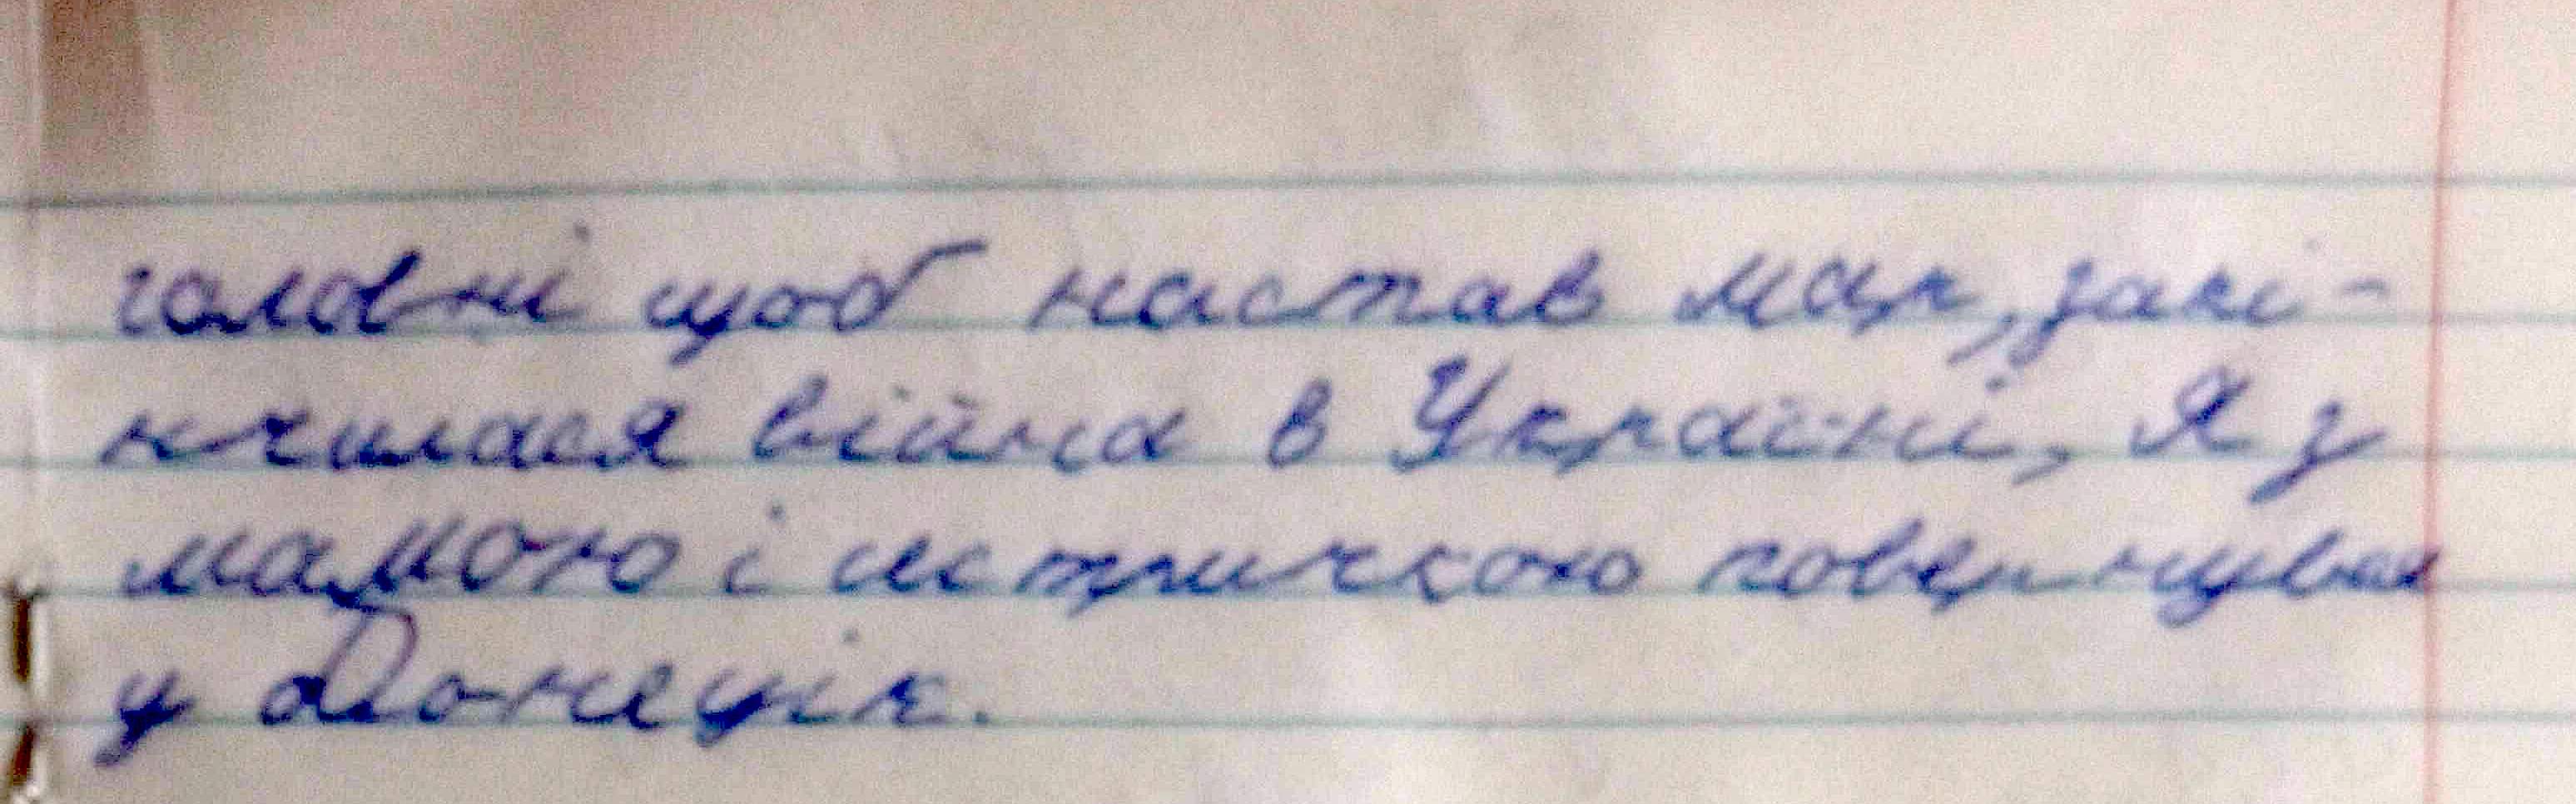 головні щоб настав мир, закі-
нчилася війна в Україні, Я з
мамою і сестричкою повернувся
у Донецік.